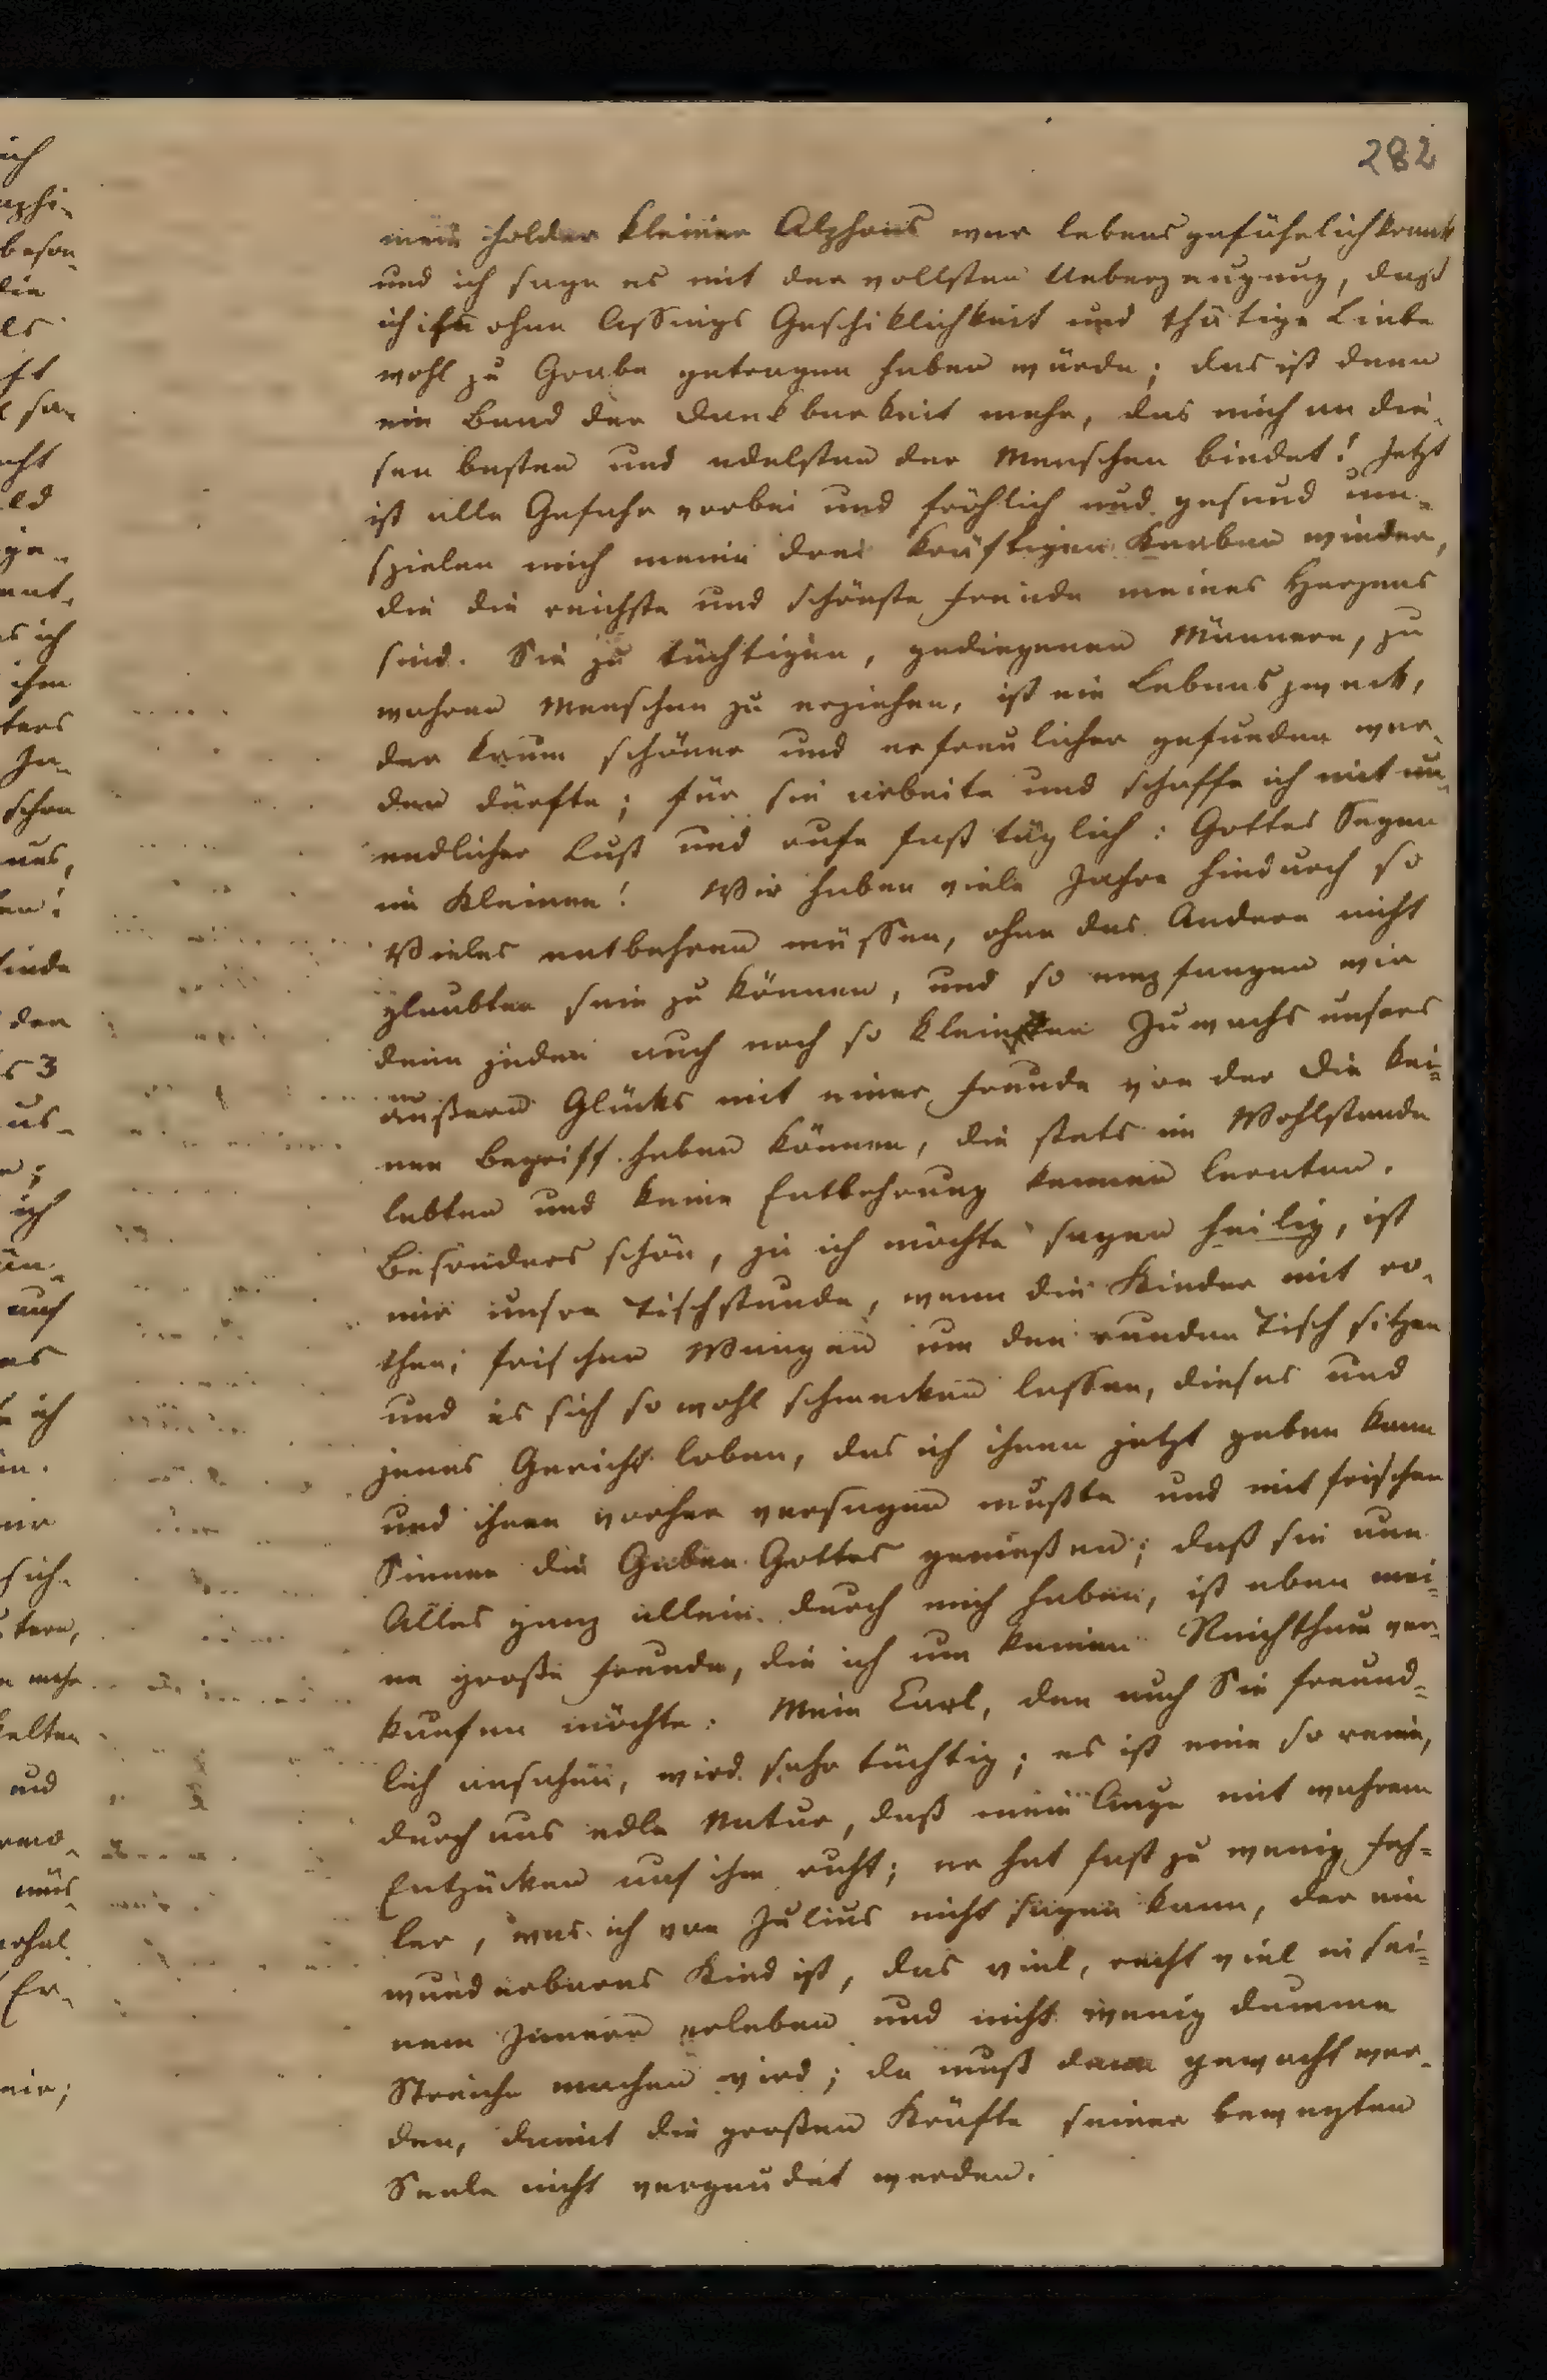 282
mein holder kleiner Alphons war lebensgefährlich krank
und ich sage es mit der vollsten Ueberzeugung, daß
ich ihn ohne Assings Geschiklichkeit und thätige Liebe
wohl zu Grabe getragen haben würde; das ist denn
ein Band der Dankbarkeit mehr, das mich an die-
sen besten und edelsten der Menschen bindet! Jetzt
ist alle Gefahr vorbei und fröhlich und gesund um-
spielen mich meine drei kräftigen Knaben wieder,
die die reichste und schönste Freude meines Herzens
sind. Sie zu tüchtigen, gediegenen Männern, zu
wahren Menschen zu erziehen, ist ein Lebenszweck,
der kaum schöner und erfreulicher gefunden wer-
den dürfte; für sie arbeite und schaffe ich mit un-
endlicher Lust und rufe fast täglich: Gottes Segen
im Kleinen! Wir haben viele Jahre hindurch so
Vieles entbehren müssen, ohne das Andere nicht
glaubten sein zu können, und so empfangen wir
denn jeden auch noch so kleinen Zuwachs unsers
äußern Glücks mit einer Freude von der die kei-
nen Begriff haben können, die stets im Wohlstande
lebten und keine Entbehrung kennen lernten.
Besonders schön, ja ich möchte sagen heilig, ist
mir unsre Tischstunde, wenn die Kinder mit ro-
then, frischen Wangen um den runden Tisch sitzen
und es sich so wohl schmecken lassen, dieses und
jenes Gericht loben, das ich ihnen jetzt geben kann
und ihnen vorher versagen mußte und mit frischen
Sinnen die Gaben Gottes genießen; daß sie nun
Alles ganz allein durch mich haben, ist eben mei-
ne große Freude, die ich um keinen Reichthum ver-
kaufen möchte. Mein Carl, den auch Sie freund-
lich ansahen, wird sehr tüchtig; es ist eine so reine,
durchaus edle Natur, daß mein Auge mit wahrem
Entzücken auf ihm ruht; er hat fast zu wenig Feh-
ler, was ich von Julius nicht sagen kann, der ein
wunderbares Kind ist, das viel, recht viel in sei-
nem Innern erleben und nicht wenig dumme
Streiche machen wird; da muß denn gewacht wer-
den, damit die großen Kräfte seiner bewegten
Seele nicht vergeudet werden.